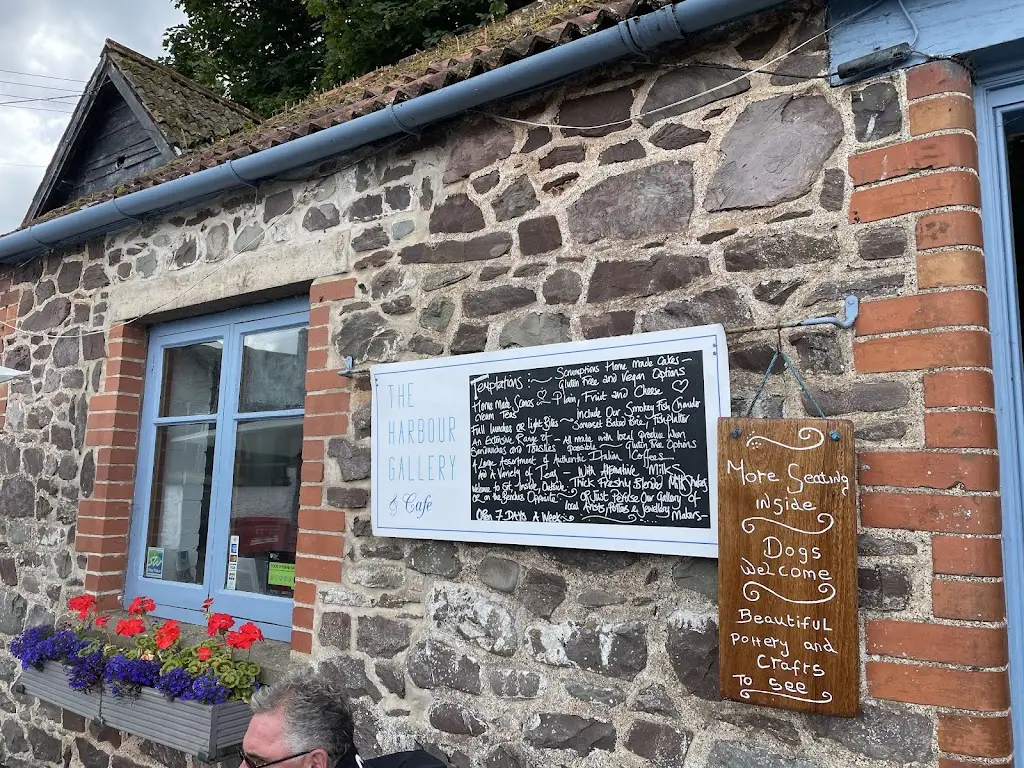 THE
HARBOUR
GALLERY
& Cafe
Temptations :~ Scrumptious Home Made Cakes ~
Gluten Free and Vegan Options
Home Made Scones ~ Plain, Fruit and Cheese
Cream Teas
Full Lunches or Light Bites ~ include Our Smokey Fish Chowder
Somerset Baked Brie, Fish Platter
An Extensive Range of ~ All made with local produce when
Sandwiches and Toasties possible ~ Gluten Free Options
A Large Assortment of Authentic Italian Coffees
And A Variety of Teas ~ With Alternative Milks
Welcome to Sit, Inside, Outside ~ Thick Freshly Blended Milk Shakes
or on the Benches Opposite ~ or Just Peruse Our Gallery of
local Artists, Potters & Jewellery Makers ~
Open 7 Days A Week ~
More Seating
inside
Dogs
Welcome
Beautiful
Pottery and
Crafts
To see